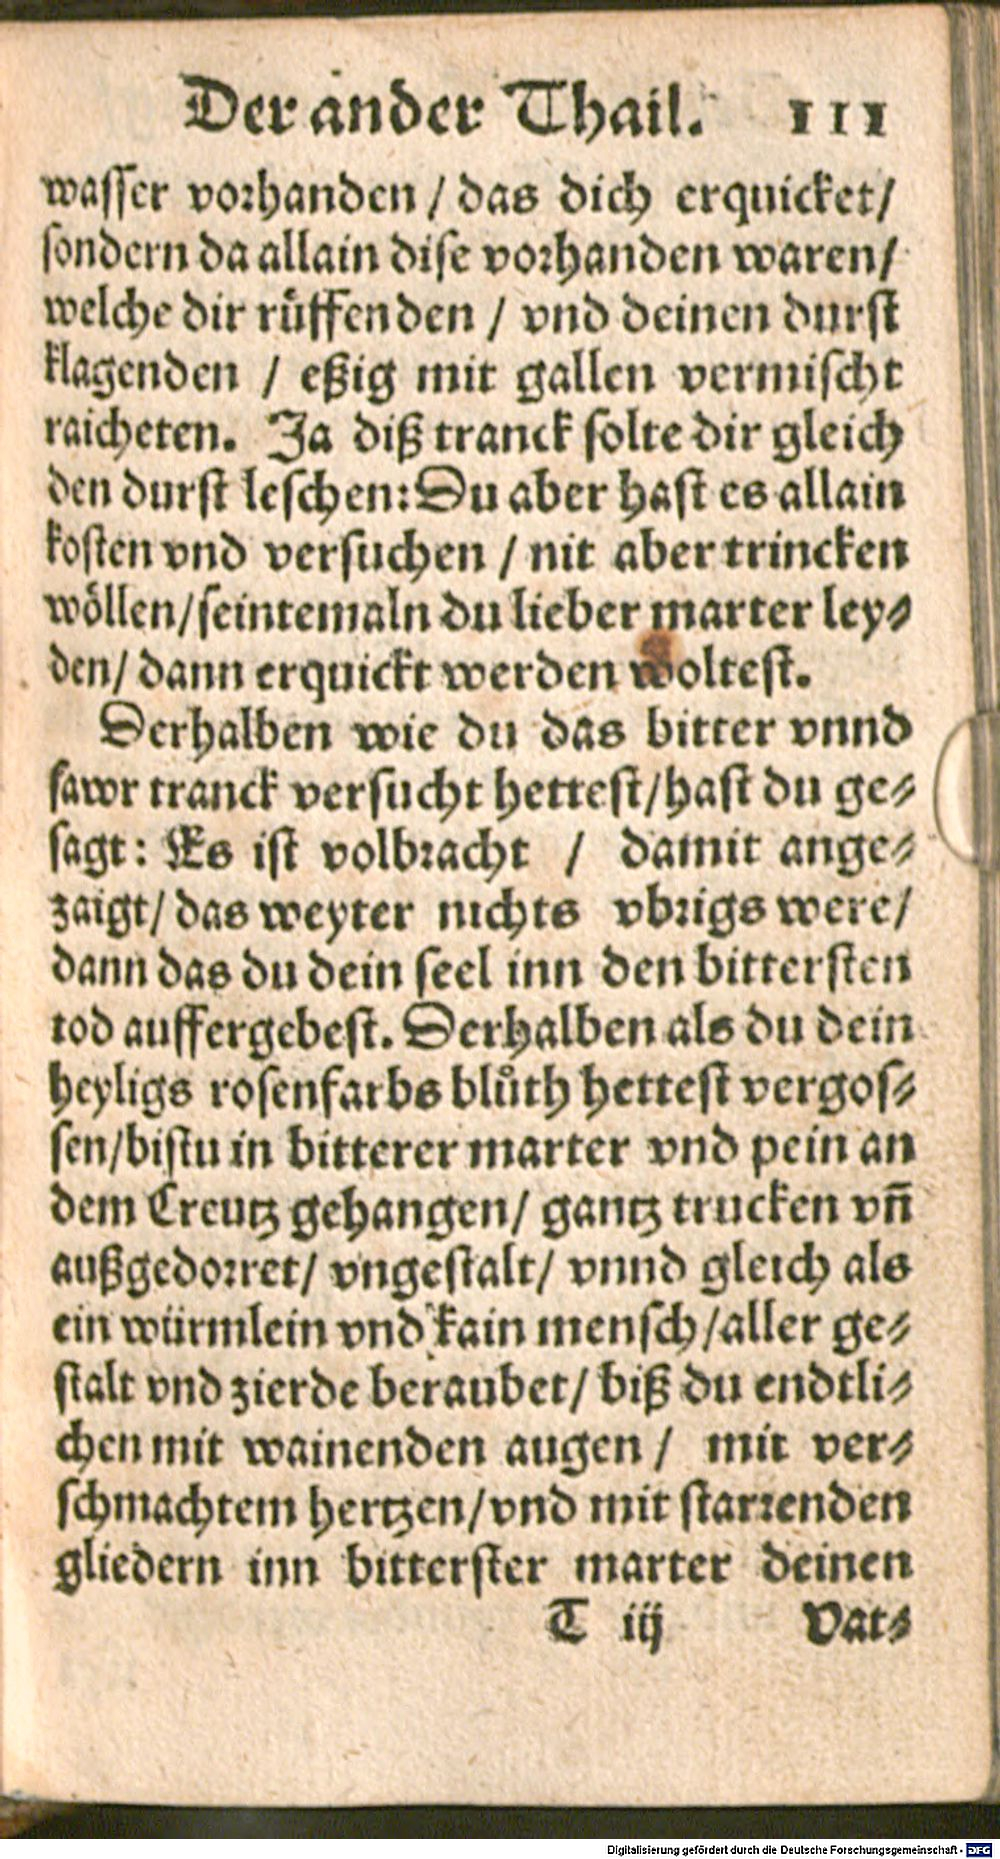 Der ander Thail. 111
wasser vorhanden / das dich erquicket /
sondern da allain dise vorhanden waren /
welche dir rüffenden / vnd deinen durst
klagenden / eßig mit gallen vermischt
raicheten. Ja diß tranck solte dir gleich
den durst leschen: Du aber hast es allain
kosten vnd versuchen / nit aber trincken
wöllen / seintemaln du lieber marter ley⸗
den / dann erquickt werden woltest.
Derhalben wie du das bitter vnnd
sawr tranck versucht hettest / hast du ge⸗
sagt: Es ist volbracht / damit ange⸗
zaigt / das weyter nichts vbrigs were /
dann das du dein seel inn den bittersten
tod auffergebest. Derhalben als du dein
heyligs rosenfarbs blůth hettest vergos⸗
sen / bistu in bitterer marter vnd pein an
dem Creutz gehangen / gantz trucken vñ
außgedorret / vngestalt / vnnd gleich als
ein würmlein vnd kain mensch / aller ge⸗
stalt vnd zierde beraubet / biß du endtli⸗
chen mit wainenden augen / mit ver⸗
schmachtem hertzen / vnd mit starrenden
gliedern inn bitterster marter deinen
T iij Vat⸗
Digitalisierung gefördert durch die Deutsche Forschungsgemeinschaft - DFG